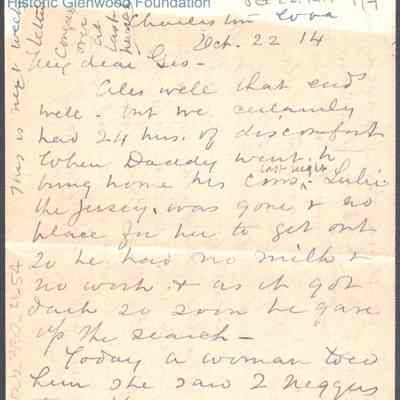 Historic Glenwood Foundation
Charleston Iowa
Oct. 22 14
My dear Sis-
Ales well that ends
well - but we certainly
had 24 hrs. of discomfort
When Daddy went to
bring home his cows last night - Lulie
the Jersey, was gone & no
place for her to get out
so he had no milk &
no work & as it got
dark so soon he gave
up the search -
Today a woman toed
him she saw 2 neggers
This is next week's
letter
over
at
last